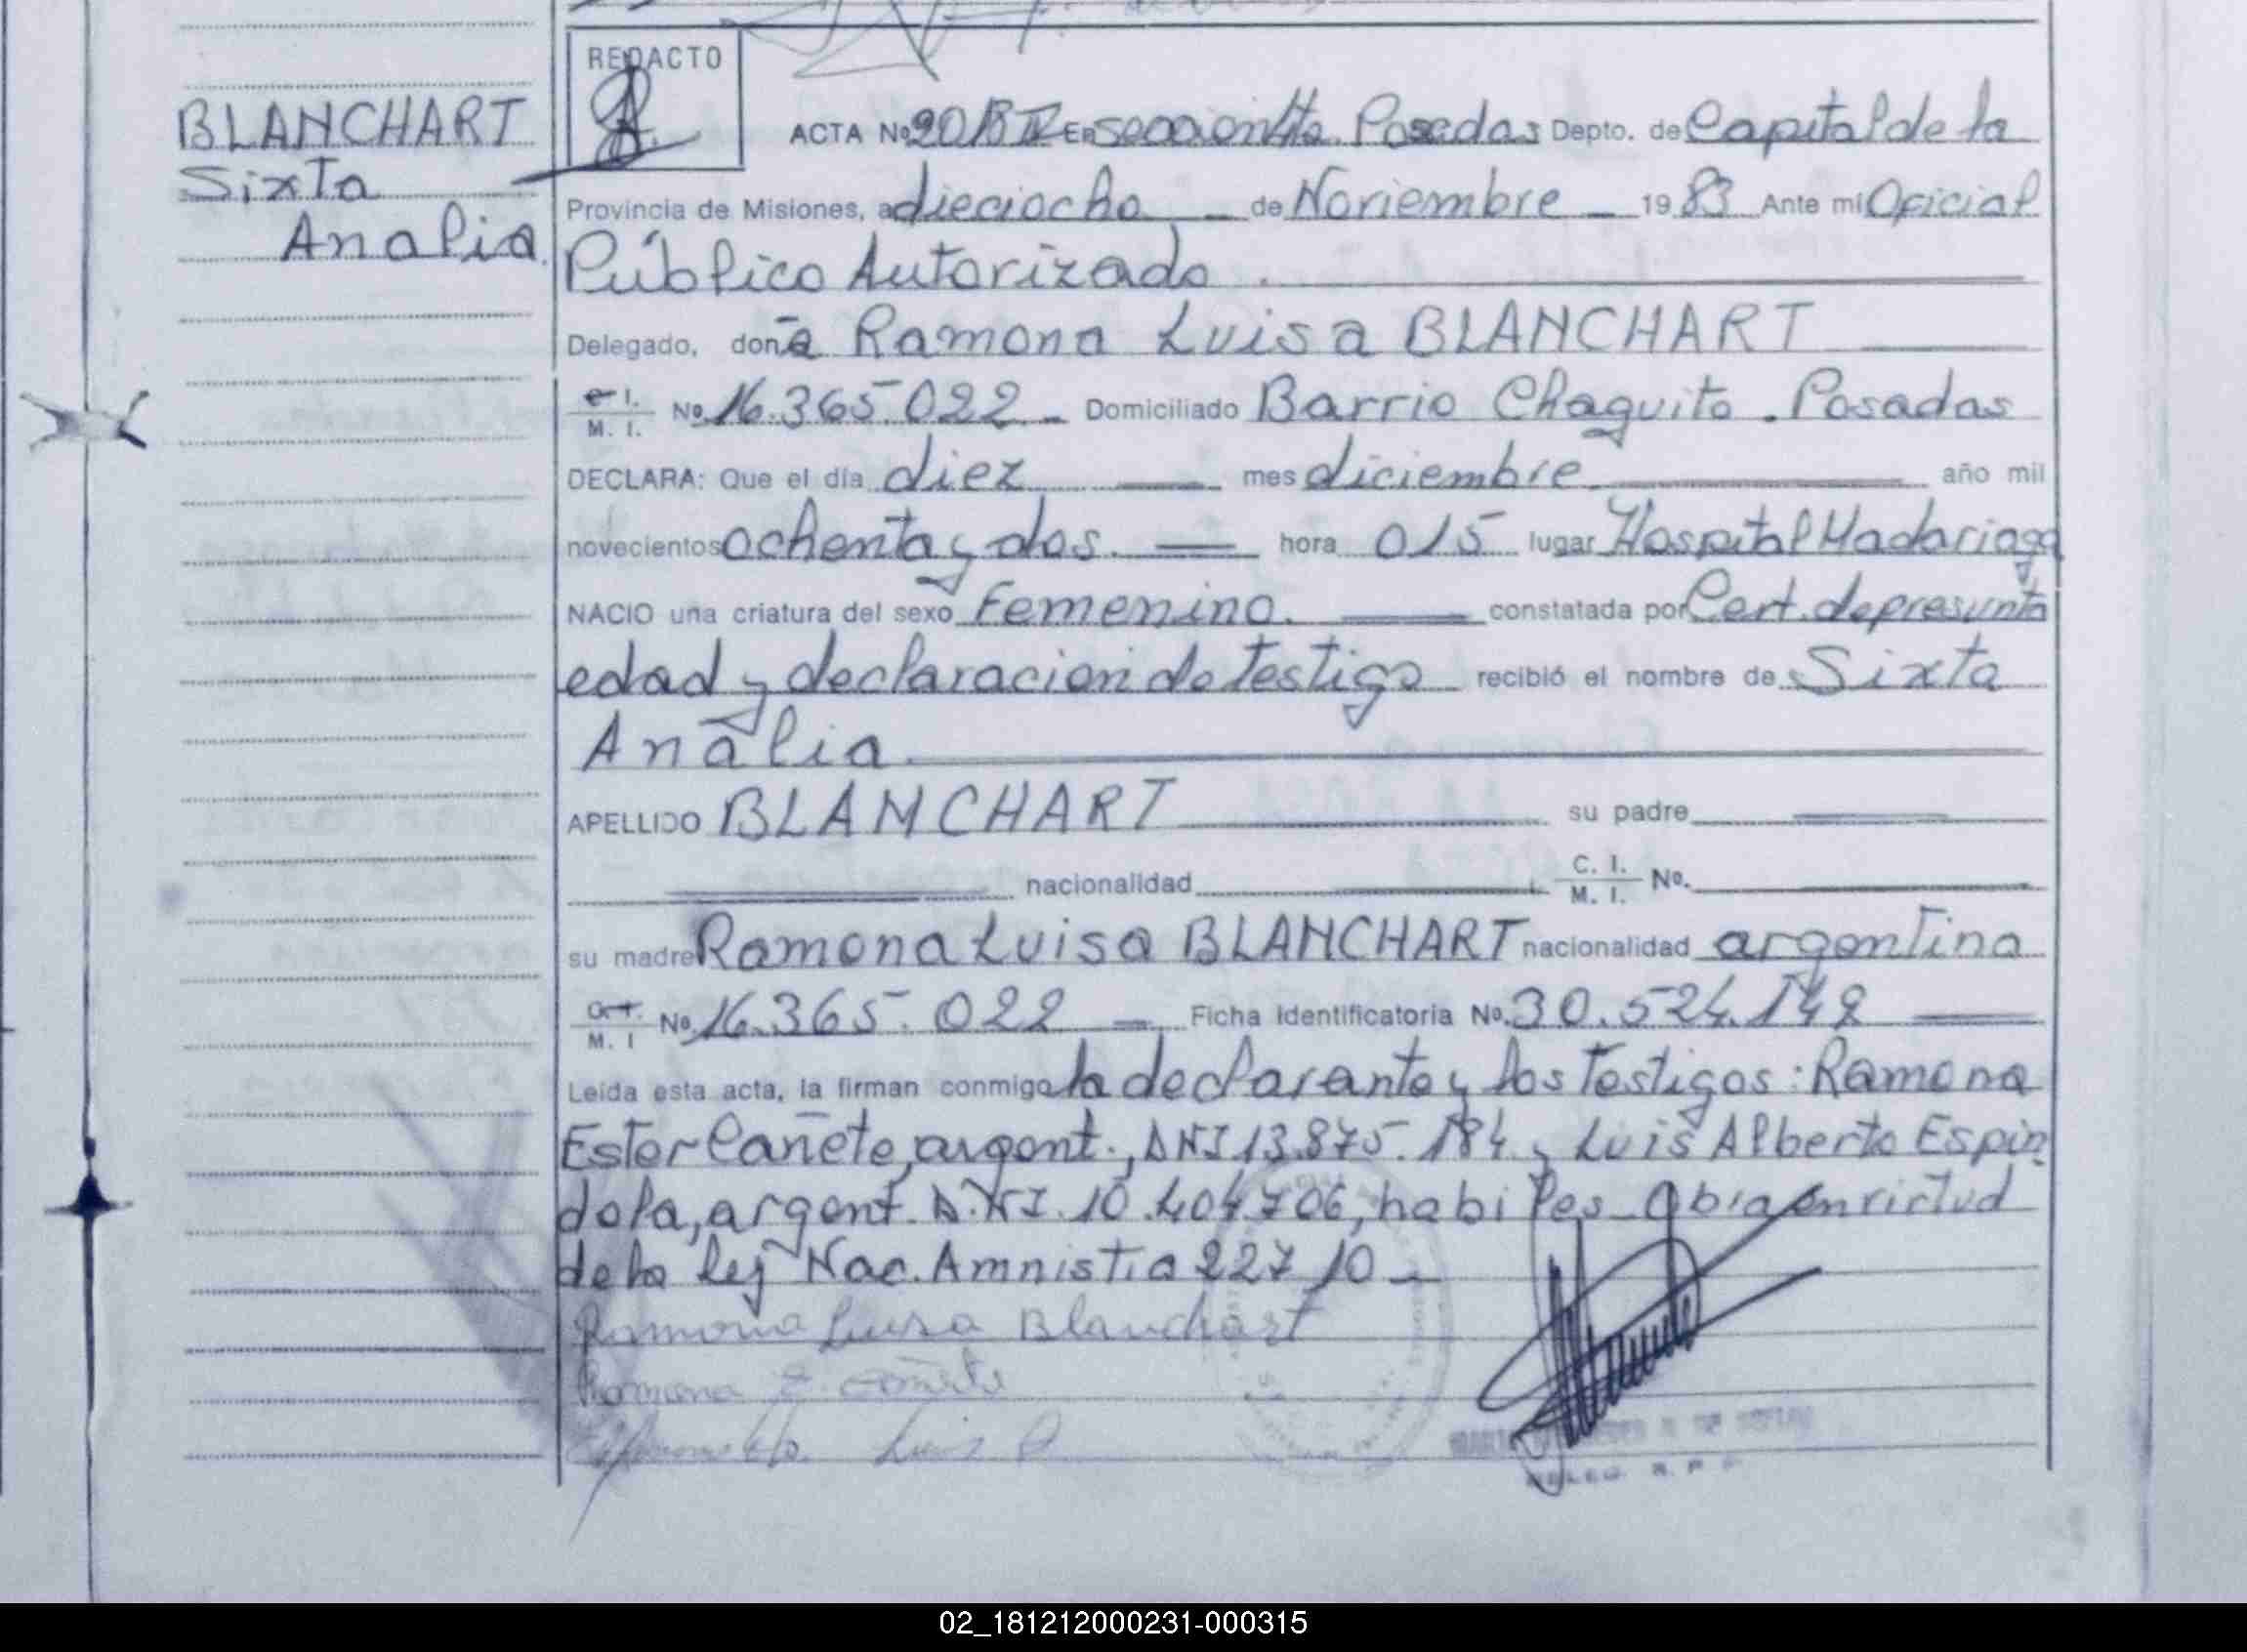 BLANCHART
Sixta
Analia.
REDACTO
ACTA Nº 201B IV En sección 4ta. Posadas Depto. de Capital de la
Provincia de Misiones, a dieciocho — de Noviembre — 19 83 Ante mi Oficial
Público Autorizado.
Delegado, doña Ramona Luisa BLANCHART
C. I. / M. I. Nº 16.365.022 - Domiciliado Barrio Chaquito. Posadas
DECLARA: Que el día diez — mes diciembre — año mil
novecientos ochenta y dos. — hora 015 lugar Hospital Madariaga
NACIO una criatura del sexo Femenino. — constatada por Cert. de presunta
edad y declaración de testigo recibió el nombre de Sixta
Analia.
APELLIDO BLANCHART su padre —
— nacionalidad — C. I. / M. I. Nº. —
su madre Ramona Luisa BLANCHART nacionalidad argentina
C. I. / M. I Nº 16.365.022 — Ficha Identificatoria Nº. 30.524.142 —
Leída esta acta, la firman conmigo la declarante y los testigos: Ramona
Ester Cañete, argent., DNI 13.875.184 y Luis Alberto Espin
dola, argent. D.N.I. 10.404.706, habiles Obra en virtud
de la ley Nac. Amnistia 22710 —
Ramona Luisa Blanchart
Ramona E. Cañete
Luis A
DELEG. R. P. P.
02_181212000231-000315